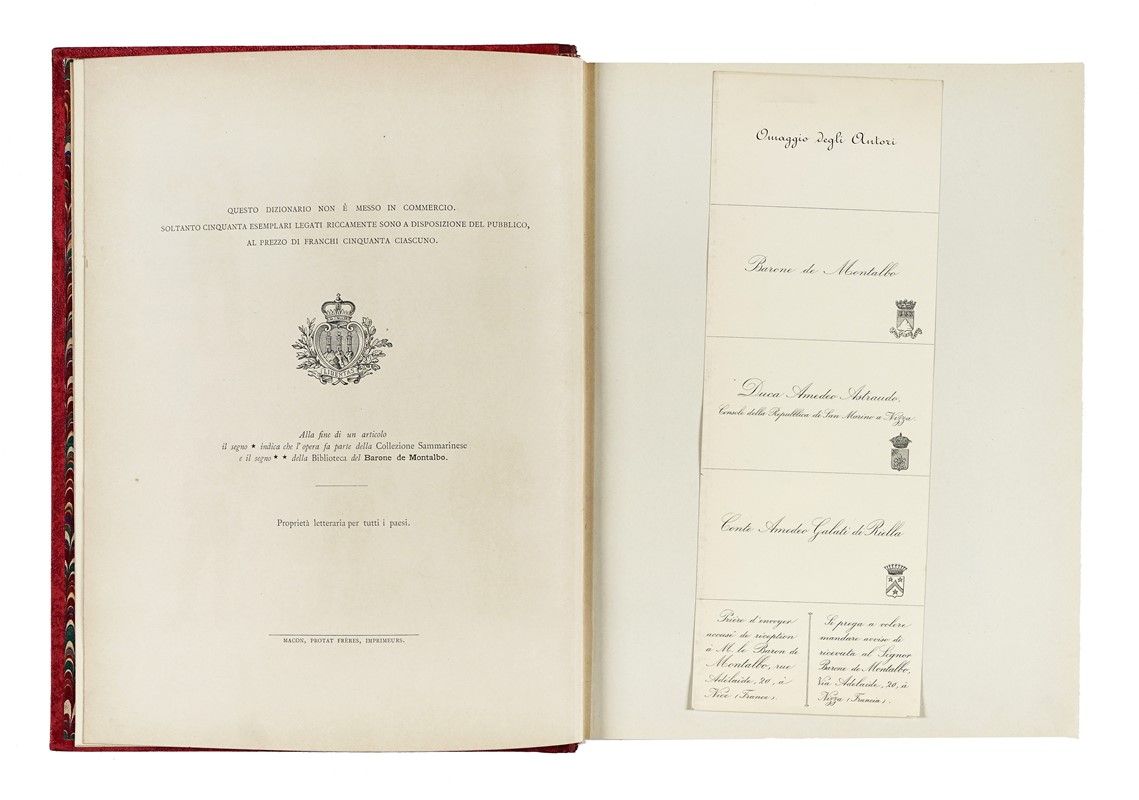 QUESTO DIZIONARIO NON È MESSO IN COMMERCIO.
SOLTANTO CINQUANTA ESEMPLARI LEGATI RICCAMENTE SONO A DISPOSIZIONE DEL PUBBLICO,
AL PREZZO DI FRANCHI CINQUANTA CIASCUNO.
LIBERTAS
Alla fine di un articolo
il segno ★ indica che l'opera fa parte della Collezione Sammarinese
e il segno ★ ★ della Biblioteca del Barone de Montalbo.
Proprietà letteraria per tutti i paesi.
MACON, PROTAT FRÈRES, IMPRIMEURS.
Omaggio degli Autori
Barone de Montalbo
Duca Amedeo Astraudo.
Console della Repubblica di San Marino a Nizza.
Conte Amedeo Galati de Riella
Prière d'envoyer
accusé de réception
à M. le Baron de
Montalbo, rue
Adelaïde, 20, à
Nice (France).
Si prega a volere
mandare avviso di
ricevuta al Signor
Barone de Montalbo,
Via Adelaide, 20, à
Nizza (Francia).